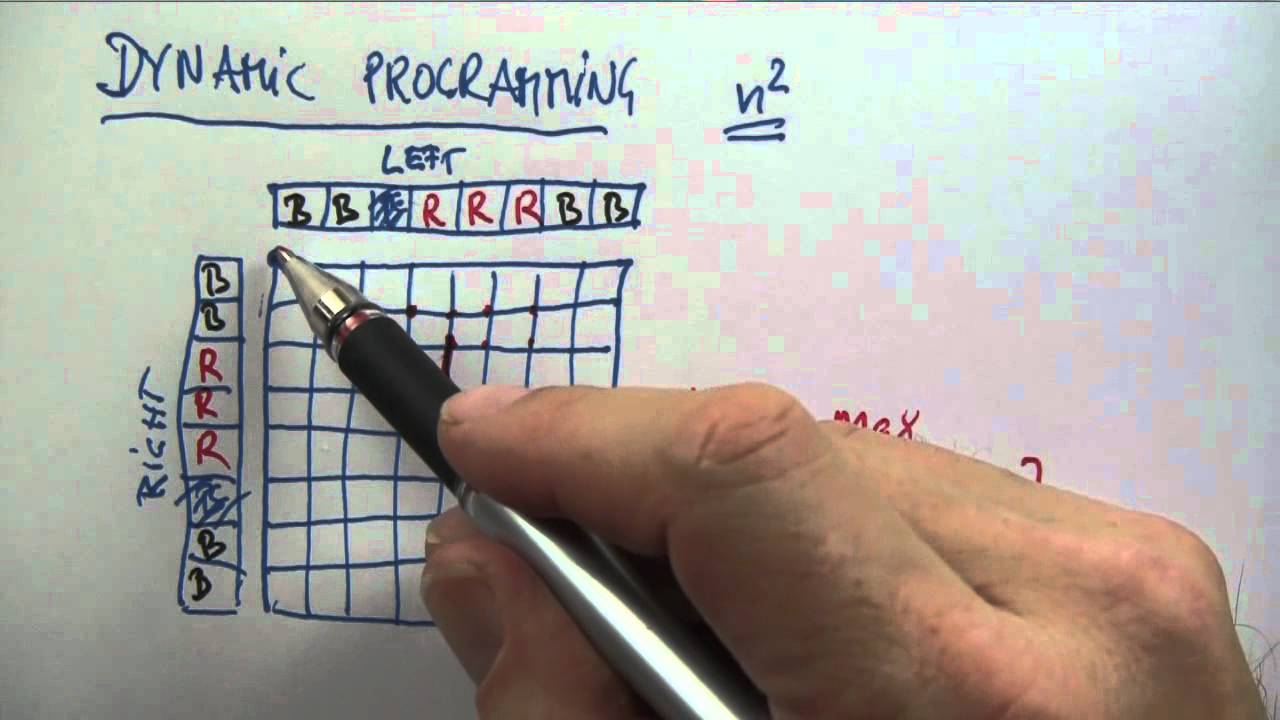 DYNAMIC PROGRAMMING n²
LEFT
B B R R R B B
B
B
R
R
R
B
B
RIGHT
max
?